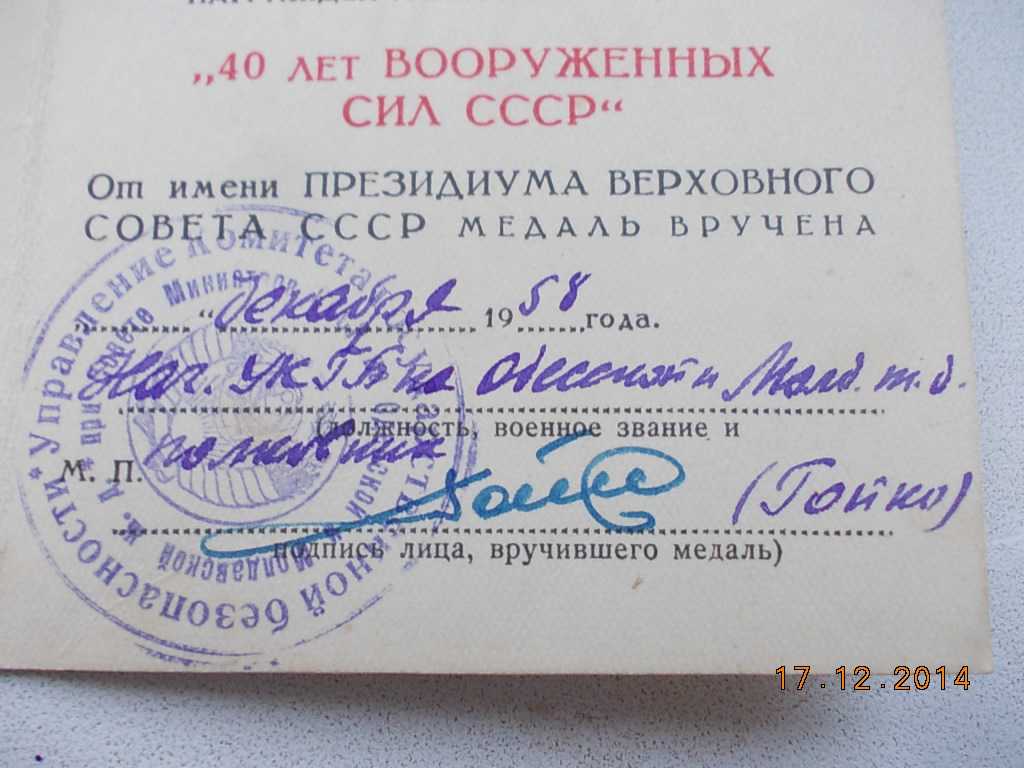 „40 лет ВООРУЖЕННЫХ
СИЛ СССР“
От имени ПРЕЗИДИУМА ВЕРХОВНОГО
СОВЕТА СССР МЕДАЛЬ ВРУЧЕНА
„ “ декабря 1958 года.
Нач. УКГБ по Одесской и Молд. ж. д.
(должность, военное звание и
М. П. полковник
(Гойко)
подпись лица, вручившего медаль)
* Управление комитета государственной безопасности *
при Совете Министров
Одесской и Молдавской ж. д.
17.12.2014